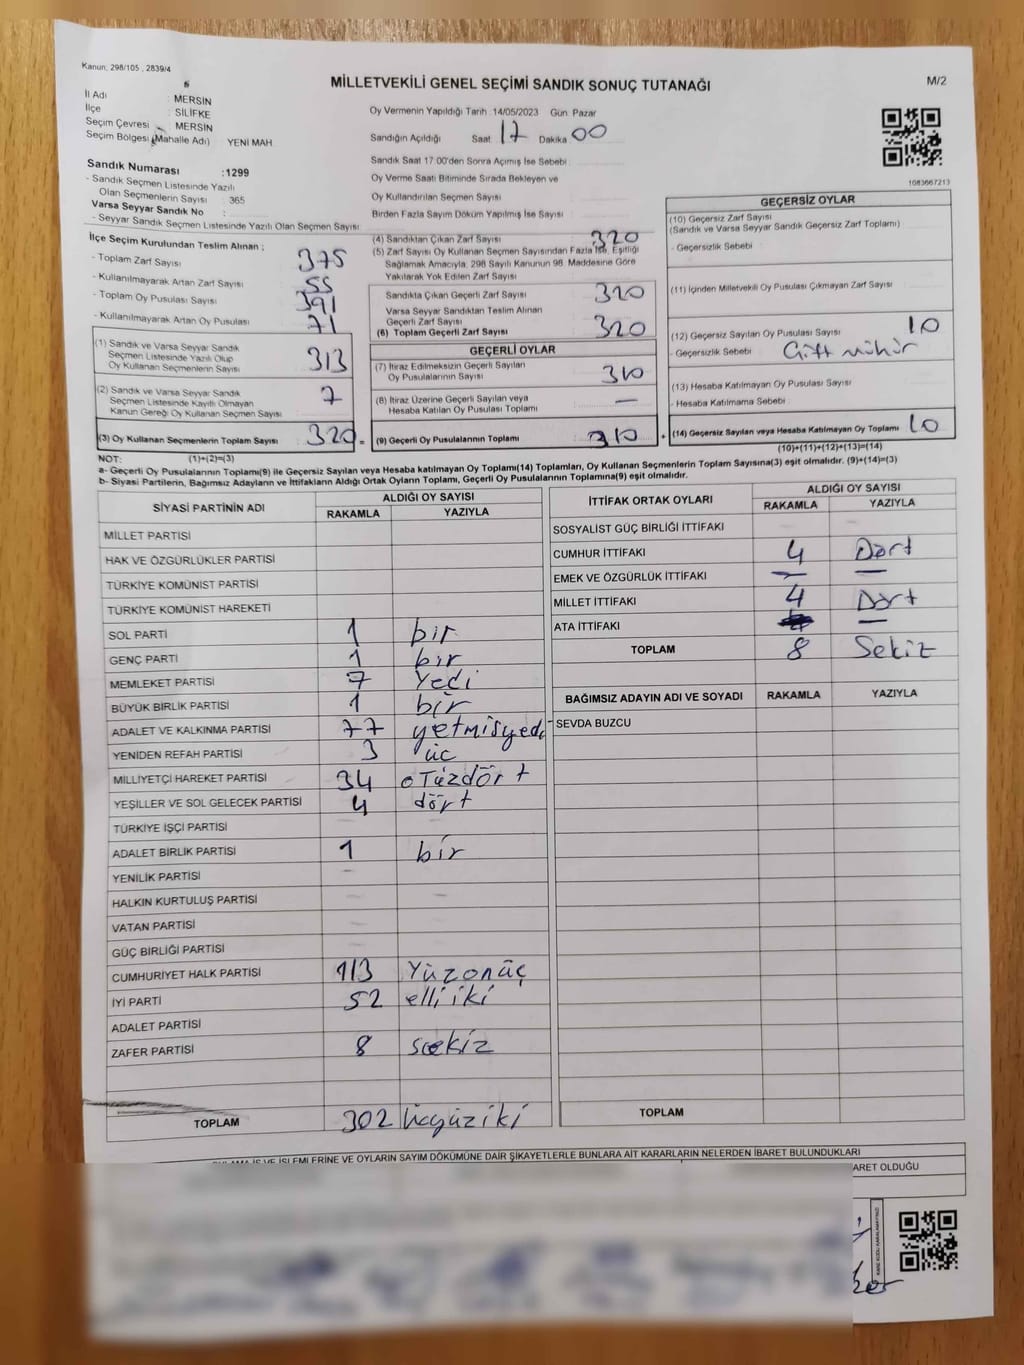 Kanun: 298/105 , 2839/4
MİLLETVEKİLİ GENEL SEÇİMİ SANDIK SONUÇ TUTANAĞI
M/2
İl Adı : MERSİN
İlçe : SİLİFKE
Seçim Çevresi : MERSİN
Seçim Bölgesi (Mahalle Adı) YENİ MAH.
Sandık Numarası :1299
- Sandık Seçmen Listesinde Yazılı
Olan Seçmenlerin Sayısı : 365
Varsa Seyyar Sandık No :
- Seyyar Sandık Seçmen Listesinde Yazılı Olan Seçmen Sayısı :
Oy Vermenin Yapıldığı Tarih :14/05/2023 Gün: Pazar
Sandığın Açıldığı Saat: 17 Dakika: 00
Sandık Saat 17:00'den Sonra Açımış İse Sebebi :
Oy Verme Saati Bitiminde Sırada Bekleyen ve
Oy Kullandırılan Seçmen Sayısı :
Birden Fazla Sayım Döküm Yapılmış İse Sayısı :
1083667213
İlçe Seçim Kurulundan Teslim Alınan ;
- Toplam Zarf Sayısı : 375
- Kullanılmayarak Artan Zarf Sayısı : 55
- Toplam Oy Pusulası Sayısı : 391
- Kullanılmayarak Artan Oy Pusulası : 71
(1) Sandık ve Varsa Seyyar Sandık
Seçmen Listesinde Yazılı Olup
Oy Kullanan Seçmenlerin Sayısı : 313
(2) Sandık ve Varsa Seyyar Sandık
Seçmen Listesinde Kayıtlı Olmayan
Kanun Gereği Oy Kullanan Seçmen Sayısı : 7
(3) Oy Kullanan Seçmenlerin Toplam Sayısı : 320 =
(4) Sandıktan Çıkan Zarf Sayısı : 320
(5) Zarf Sayısı Oy Kullanan Seçmen Sayısından Fazla İse, Eşitliği
Sağlamak Amacıyla, 298 Sayılı Kanunun 98. Maddesine Göre
Yakılarak Yok Edilen Zarf Sayısı :
Sandıkta Çıkan Geçerli Zarf Sayısı : 320
Varsa Seyyar Sandıktan Teslim Alınan
Geçerli Zarf Sayısı :
(6) Toplam Geçerli Zarf Sayısı : 320
GEÇERLİ OYLAR
(7) İtiraz Edilmeksizin Geçerli Sayılan
Oy Pusulalarının Sayısı : 310
(8) İtiraz Üzerine Geçerli Sayılan veya
Hesaba Katılan Oy Pusulası Toplamı : —
(9) Geçerli Oy Pusulalarının Toplamı : 310 +
GEÇERSİZ OYLAR
(10) Geçersiz Zarf Sayısı :
(Sandık ve Varsa Seyyar Sandık Geçersiz Zarf Toplamı)
- Geçersizlik Sebebi :
(11) İçinden Milletvekili Oy Pusulası Çıkmayan Zarf Sayısı :
(12) Geçersiz Sayılan Oy Pusulası Sayısı : 10
- Geçersizlik Sebebi : Çift mühür
(13) Hesaba Katılmayan Oy Pusulası Sayısı :
- Hesaba Katılmama Sebebi :
(14) Geçersiz Sayılan veya Hesaba Katılmayan Oy Toplamı : 10
NOT: (1)+(2)=(3)
(10)+(11)+(12)+(13)=(14)
a- Geçerli Oy Pusulalarının Toplamı(9) ile Geçersiz Sayılan veya Hesaba katılmayan Oy Toplamı(14) Toplamları, Oy Kullanan Seçmenlerin Toplam Sayısına(3) eşit olmalıdır. (9)+(14)=(3)
b- Siyasi Partilerin, Bağımsız Adayların ve İttifakların Aldığı Ortak Oyların Toplamı, Geçerli Oy Pusulalarının Toplamına(9) eşit olmalıdır.
SİYASİ PARTİNİN ADI
ALDIĞI OY SAYISI
RAKAMLA YAZIYLA
MİLLET PARTİSİ
HAK VE ÖZGÜRLÜKLER PARTİSİ
TÜRKİYE KOMÜNİST PARTİSİ
TÜRKİYE KOMÜNİST HAREKETİ
SOL PARTİ 1 bir
GENÇ PARTİ 1 bir
MEMLEKET PARTİSİ 7 Yedi
BÜYÜK BİRLİK PARTİSİ 1 bir
ADALET VE KALKINMA PARTİSİ 77 yetmişyedi
YENİDEN REFAH PARTİSİ 3 üc
MİLLİYETÇİ HAREKET PARTİSİ 34 oTüzdört
YEŞİLLER VE SOL GELECEK PARTİSİ 4 dört
TÜRKİYE İŞÇİ PARTİSİ
ADALET BİRLİK PARTİSİ 1 bir
YENİLİK PARTİSİ
HALKIN KURTULUŞ PARTİSİ
VATAN PARTİSİ
GÜÇ BİRLİĞİ PARTİSİ
CUMHURİYET HALK PARTİSİ 113 Yüzonüç
İYİ PARTİ 52 elli iki
ADALET PARTİSİ
ZAFER PARTİSİ 8 sekiz
TOPLAM 302 üçyüziki
İTTİFAK ORTAK OYLARI
ALDIĞI OY SAYISI
RAKAMLA YAZIYLA
SOSYALİST GÜÇ BİRLİĞİ İTTİFAKI
CUMHUR İTTİFAKI 4 Dört
EMEK VE ÖZGÜRLÜK İTTİFAKI — —
MİLLET İTTİFAKI 4 Dört
ATA İTTİFAKI —
TOPLAM 8 Sekiz
BAĞIMSIZ ADAYIN ADI VE SOYADI RAKAMLA YAZIYLA
SEVDA BUZCU
TOPLAM
İŞLEMLERİNE VE OYLARIN SAYIM DÖKÜMÜNE DAİR ŞİKAYETLERLE BUNLARA AİT KARARLARIN NELERDEN İBARET BULUNDUKLARI
ARET OLDUĞU